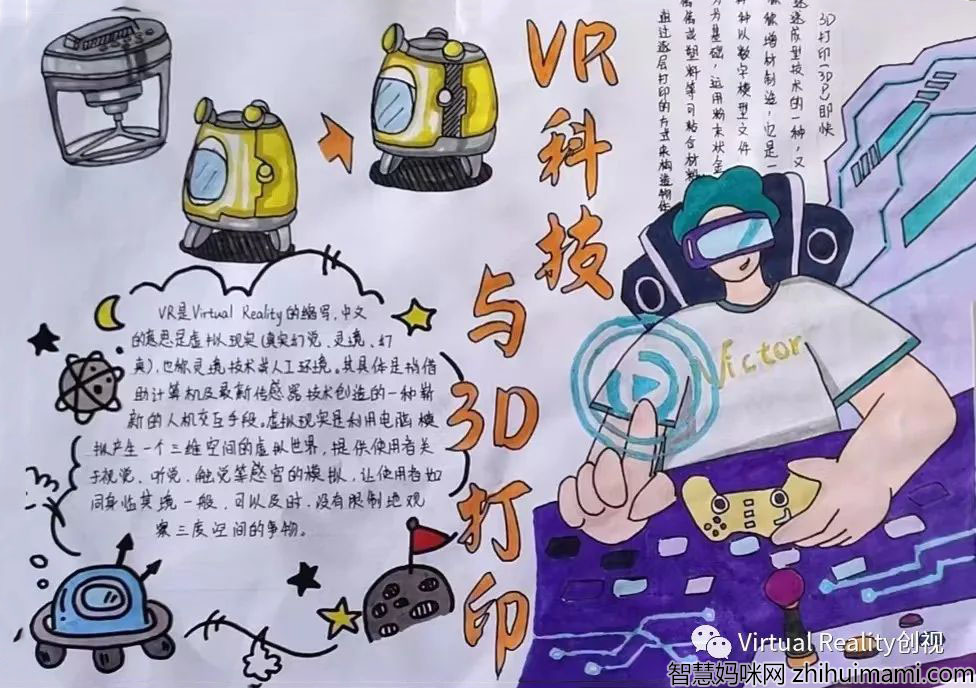 VR科技
与3D打印
3D打印(3DP)即快
速成型技术的一种,又
称增材制造,它是一
种以数字模型文件
为基础,运用粉末状金
属或塑料等可粘合材料,
通过逐层打印的方式来构造物体
VR是Virtual Reality的缩写,中文
的意思是虚拟现实(真实幻觉、灵境、幻
真),也称灵境技术或人工环境。其具体是指借
助计算机及最新传感器技术创造的一种崭
新的人机交互手段。虚拟现实是利用电脑模
拟产生一个三维空间的虚拟世界,提供使用者关
于视觉、听觉、触觉等感官的模拟,让使用者如
同身临其境一般,可以及时、没有限制地观
察三度空间的事物。
Victor
Virtual Reality创视
智慧妈咪网 zhihuimami.com